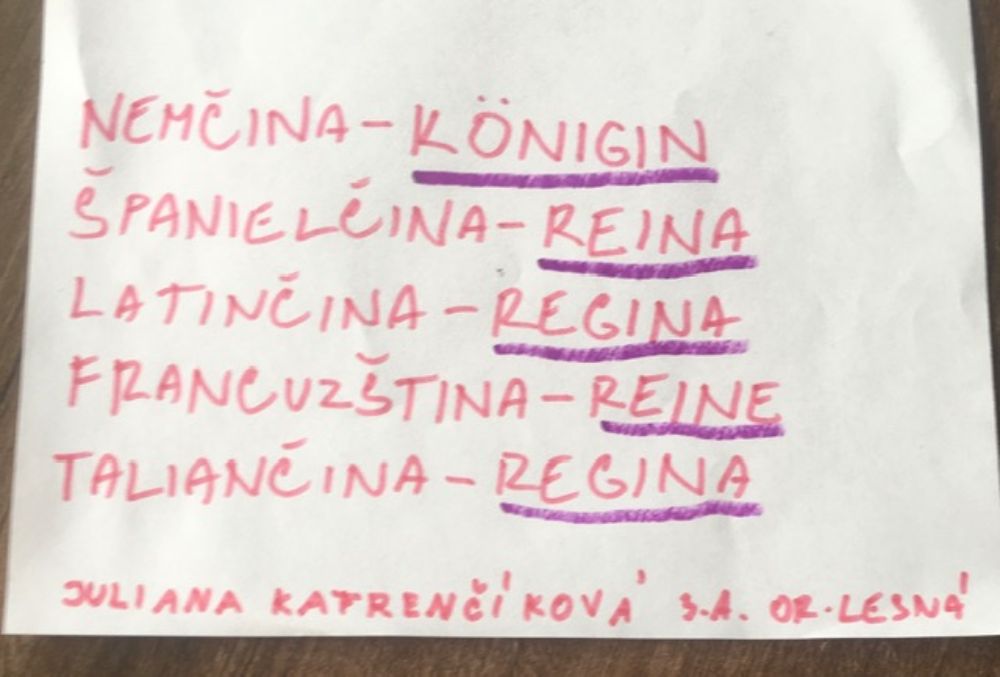 NEMČINA - KÖNIGIN
ŠPANIELČINA - REINA
LATINČINA - REGINA
FRANCUZŠTINA - REINE
TALIANČINA - REGINA
JULIANA KATRENČÍKOVÁ 3.A. OR. LESNÁ